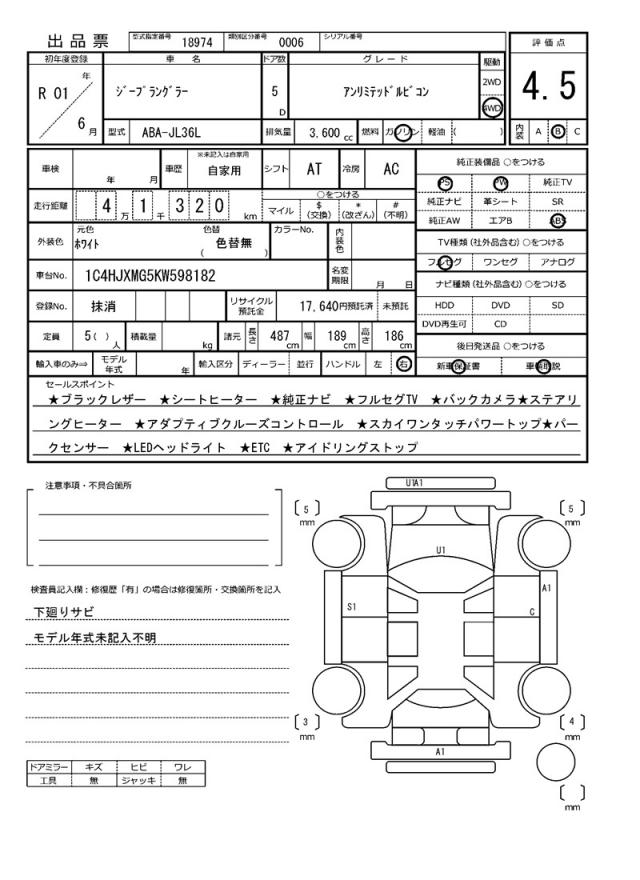 出品票 型式指定番号 18974 類別区分番号 0006 シリアル番号
評価点
4.5
初年度登録 車名 ドア数 グレード 駆動
R 01 年 6 月
ジープラングラー 5 D アンリミテッドルビコン 2WD 4WD
型式 ABA-JL36L 排気量 3,600 cc 燃料 ガソリン 軽油 ( ) 内装 A B C
車検 年 月 車歴 ※未記入は自家用 自家用 シフト AT 冷房 AC
走行距離 4 万 1 千 3 2 0 km
○をつける
マイル $ (交換) * (改ざん) # (不明)
外装色 元色 ホワイト 色替 ( 色替無 ) カラーNo. 内装色
車台No. 1C4HJXMG5KW598182 名変期限 月 日
登録No. 抹消 リサイクル預託金 17,640円 預託済 未預託
定員 5( ) 人 積載量 kg 諸元 長さ 487 cm 幅 189 cm 高さ 186 cm
輸入車のみ⇒ モデル年式 年 輸入区分 ディーラー 並行 ハンドル 左 右
純正装備品 ○をつける
PS PW 純正TV
純正ナビ 革シート SR
純正AW エアB ABS
TV種類 (社外品含む) ○をつける
フルセグ ワンセグ アナログ
ナビ種類 (社外品含む) ○をつける
HDD DVD SD
DVD再生可 CD
後日発送品 ○をつける
新車保証書 車輌取説
セールスポイント
★ブラックレザー ★シートヒーター ★純正ナビ ★フルセグTV ★バックカメラ★ステアリ
ングヒーター ★アダプティブクルーズコントロール ★スカイワンタッチパワートップ★パー
クセンサー ★LEDヘッドライト ★ETC ★アイドリングストップ
注意事項・不具合箇所
検査員記入欄：修復歴「有」の場合は修復箇所・交換箇所を記入
下廻りサビ
モデル年式未記入不明
ドアミラー キズ ヒビ ワレ
工具 無 ジャッキ 無
U1A1
5 mm
5 mm
U1
A1
S1
C
3 mm
4 mm
A1
mm